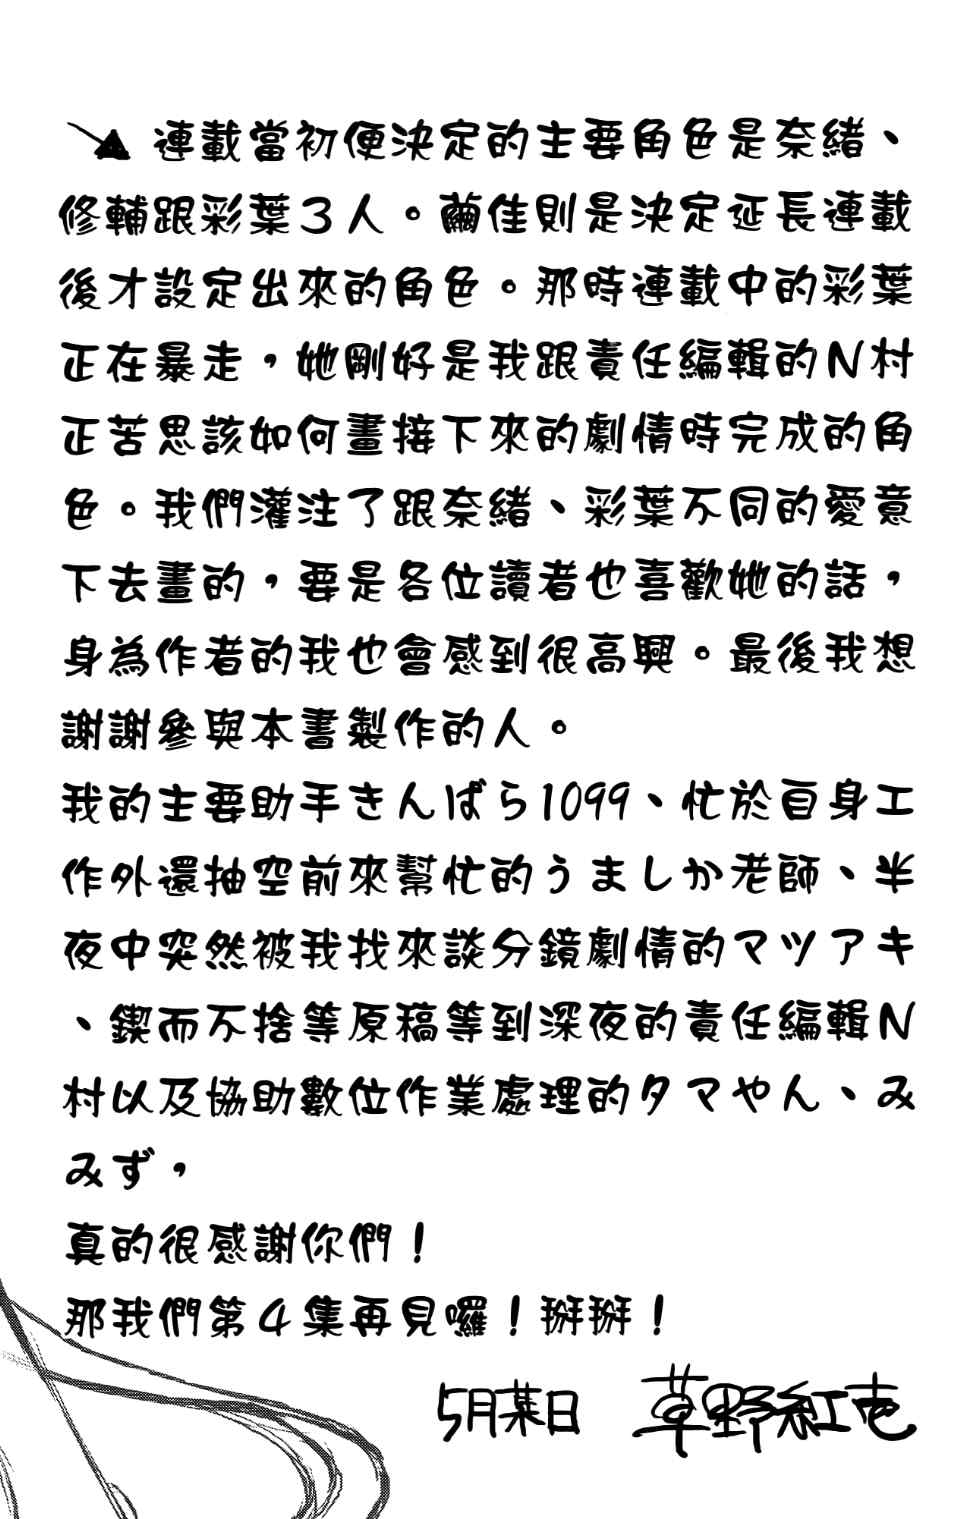 連載當初便決定的主要角色是奈緒、
修輔跟彩葉3人。繭佳則是決定延長連載
後才設定出來的角色。那時連載中的彩葉
正在暴走，她剛好是我跟責任編輯的N村
正苦思該如何畫接下來的劇情時完成的角
色。我們灌注了跟奈緒、彩葉不同的愛意
下去畫的，要是各位讀者也喜歡她的話，
身為作者的我也會感到很高興。最後我想
謝謝參與本書製作的人。
我的主要助手きんばら1099、忙於自身工
作外還抽空前來幫忙的うましか老師、半
夜中突然被我找來談分鏡劇情的マツアキ
、鍥而不捨等原稿等到深夜的責任編輯N
村以及協助數位作業處理的タマやん、み
みず，
真的很感謝你們！
那我們第4集再見囉！掰掰！
5月葉日 草野紅壱